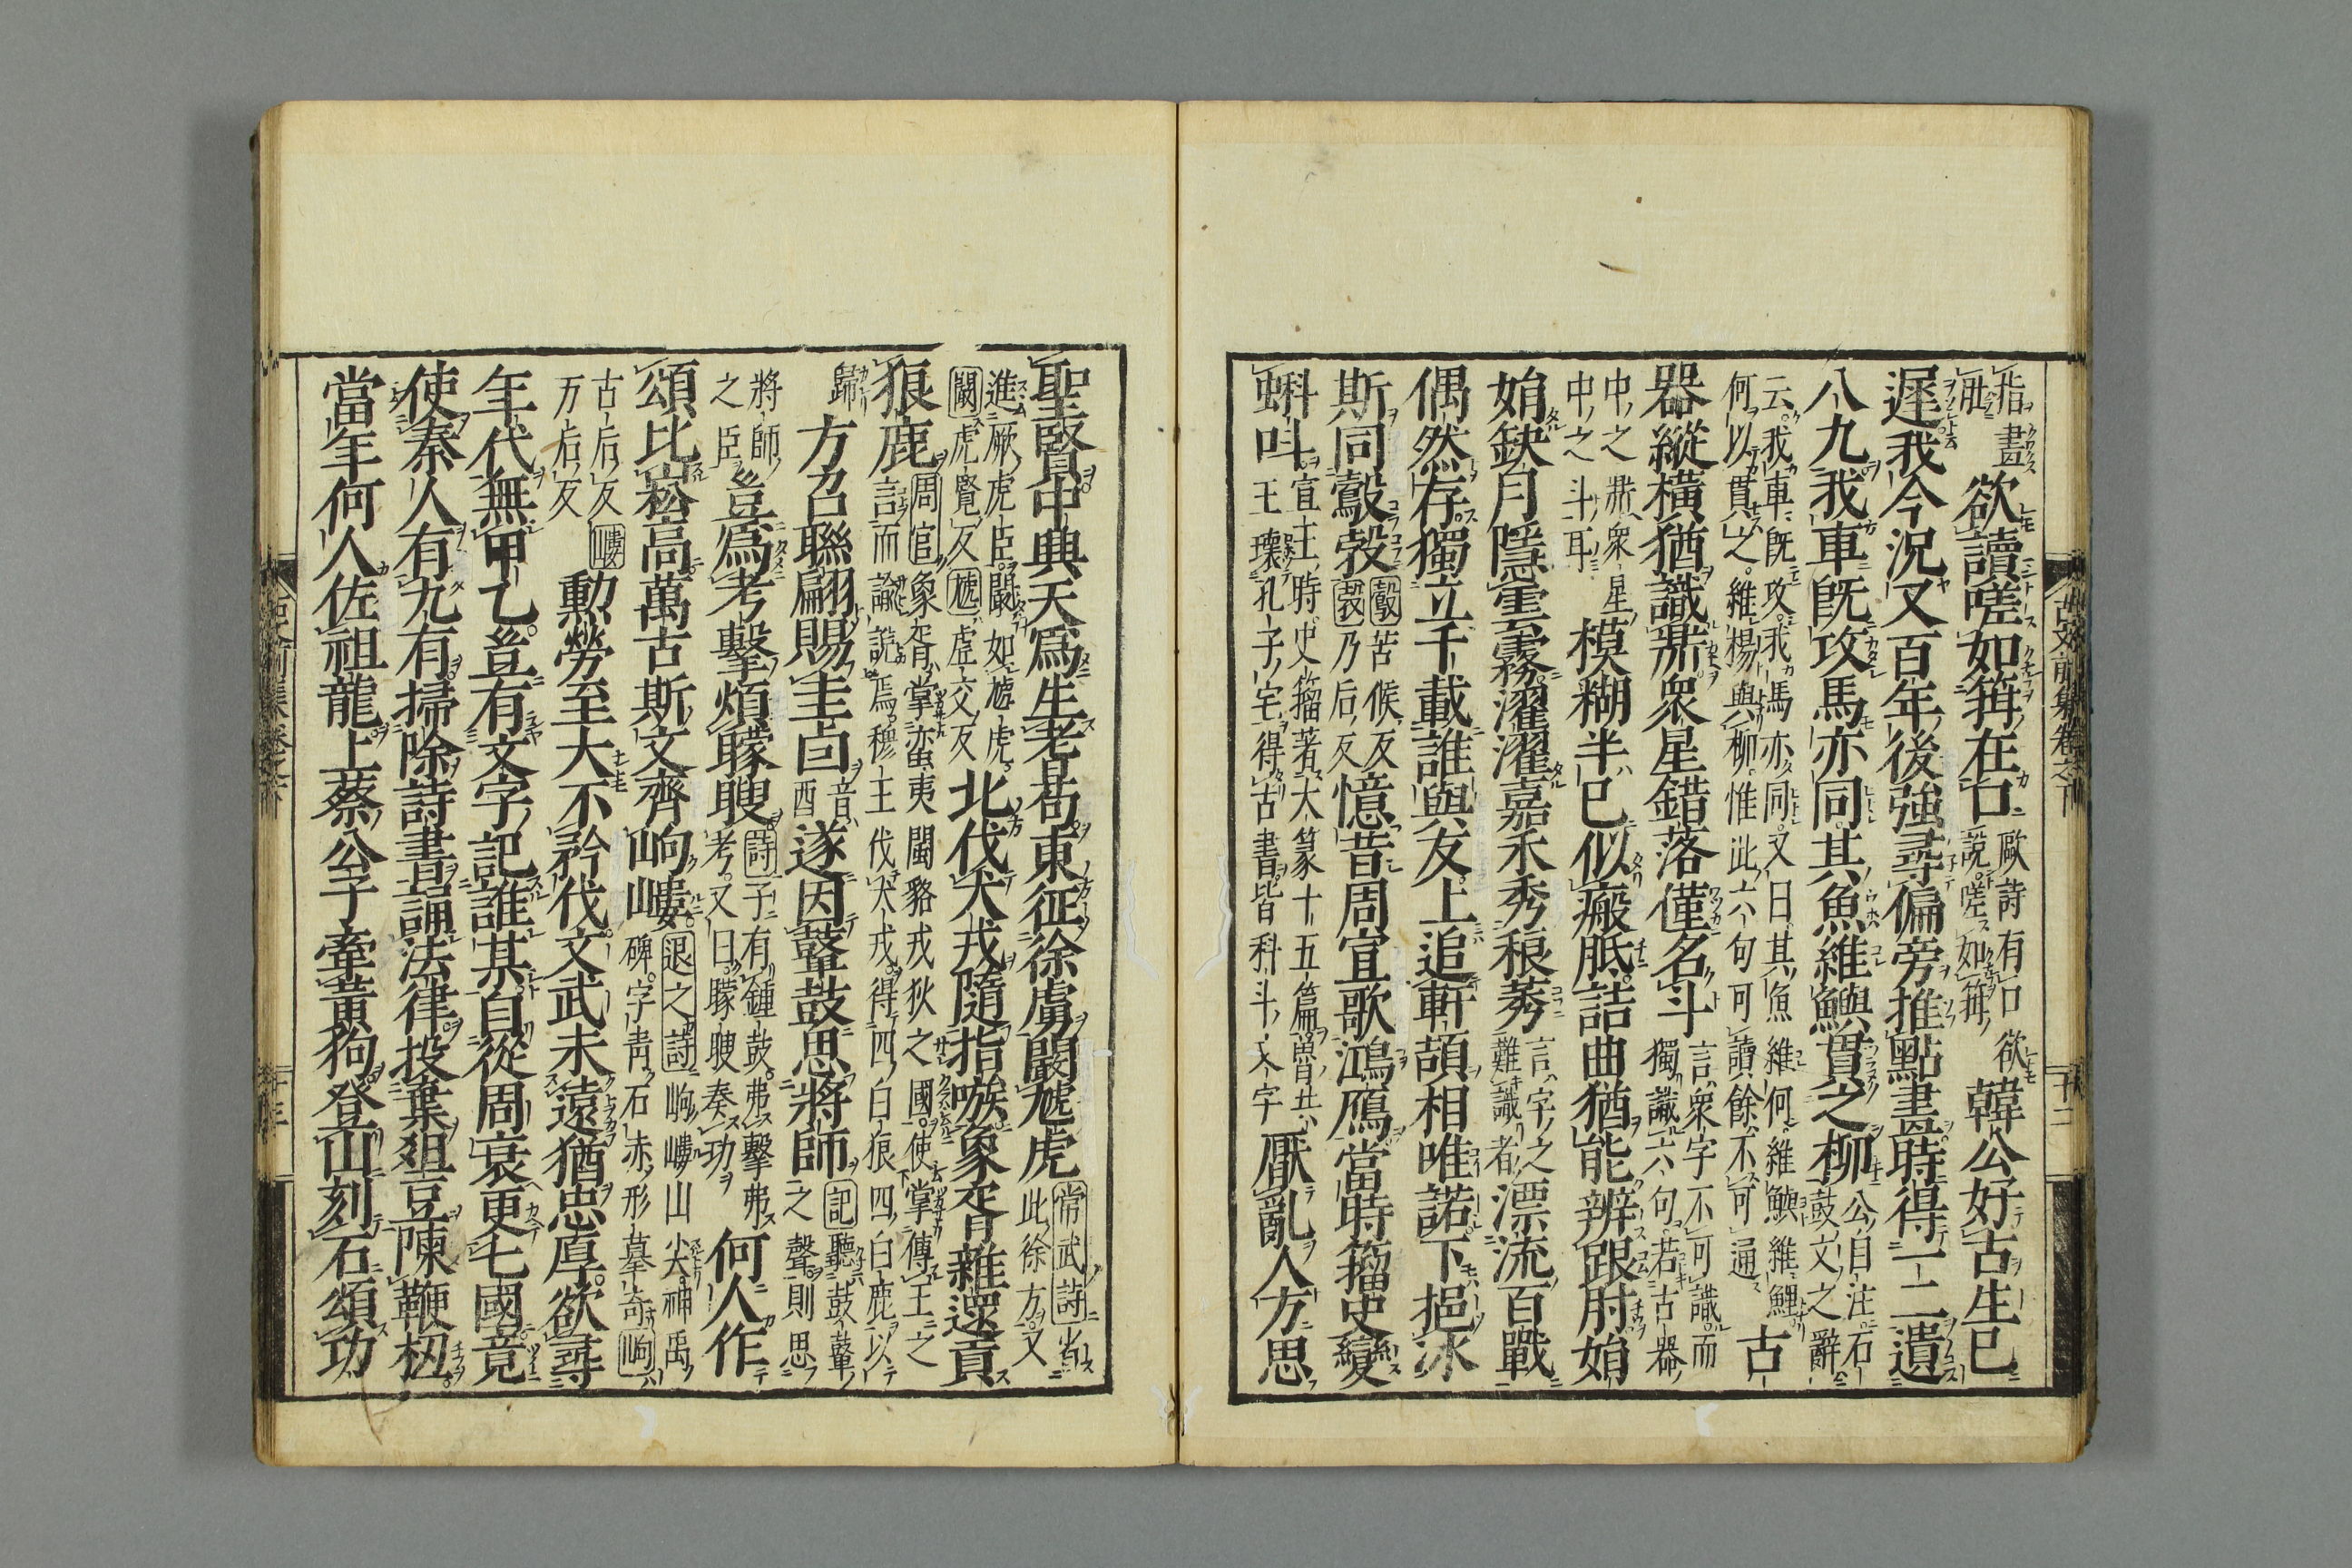 指畫肚欲讀嗟如箝在口歐詩有口欲說嗟如箝韓公好古生已
遲我今況又百年後強尋偏旁推點畫時得一二遺
八九我車既攻馬亦同其魚維鱮貫之柳公自注石鼓文之辭
云我車既攻我馬亦同又曰其魚維何維鱮維鯉何以貫之維楊與柳惟此六句可讀餘不可通古
器縱橫猶識鼎衆星錯落僅名斗言衆字不可識而獨識六句若古器
中之鼎衆星中之斗耳模糊半已似瘢胝詰曲猶能辨跟肘娟
娟缺月隱雲霧濯濯嘉禾秀稂莠言字之難識者漂流百戰
偶然存獨立千載誰與友上追軒頡相唯諾下挹冰
斯同鷇㝅鷇苦候反㝅乃后反憶昔周宣歌鴻鴈當時籀史變
蝌蚪宣王時史籀著大篆十五篇魯共王壞孔子宅得古書皆科斗文字厭亂人方思
古文前集卷之下
十二
聖賢中興天爲生耆耈東征徐虜闞虓虎常武詩省此徐方又
進厥虎臣闞如虓虎闞虎覽反虓虛交反北伐犬戎隨指嗾象胥雜還貢
狼鹿周官象胥掌蠻夷閩貉戎狄之國使掌傳王之言而諭說焉穆王伐犬戎得四白狼四白鹿以
歸方召聯翩賜圭卣音酉遂因鼙鼓思將師記聽鼓鼙之聲則思
將師之臣豈爲考擊煩矇瞍詩子有鍾鼓弗擊弗考又曰矇瞍奏功何人作
頌比崧高萬古斯文齊岣嶁退之詩岣嶁山尖神禹碑字青石赤形摹奇岣
古后反嶁万后反勲勞至大不矜伐文武未遠猶忠厚欲尋
年代無甲乙豈有文字記誰某自從周衰更七國竟
使秦人有九有掃除詩書誦法律投棄俎豆陳鞭杻
當年何人佐祖龍上蔡公子牽黃狗登山刻石頌功